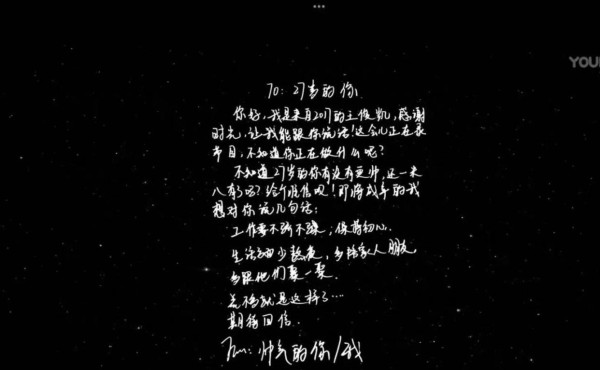 YOUK
TO：27岁的你
你好，我是来自2017的王俊凯，感谢
时光，让我能跟你说话！这会儿正在录
节目，不知道你正在做什么呢？
不知道27岁的你有没有更帅，这一米
八有了吧？给个准信呗！即将成年的我
想对你说几句话：
工作要不骄不躁，保持初心。
生活要少熬夜，多陪家人朋友，
多跟他们聚一聚。
差不多就是这样了…
期待回信
From：帅气的你/我